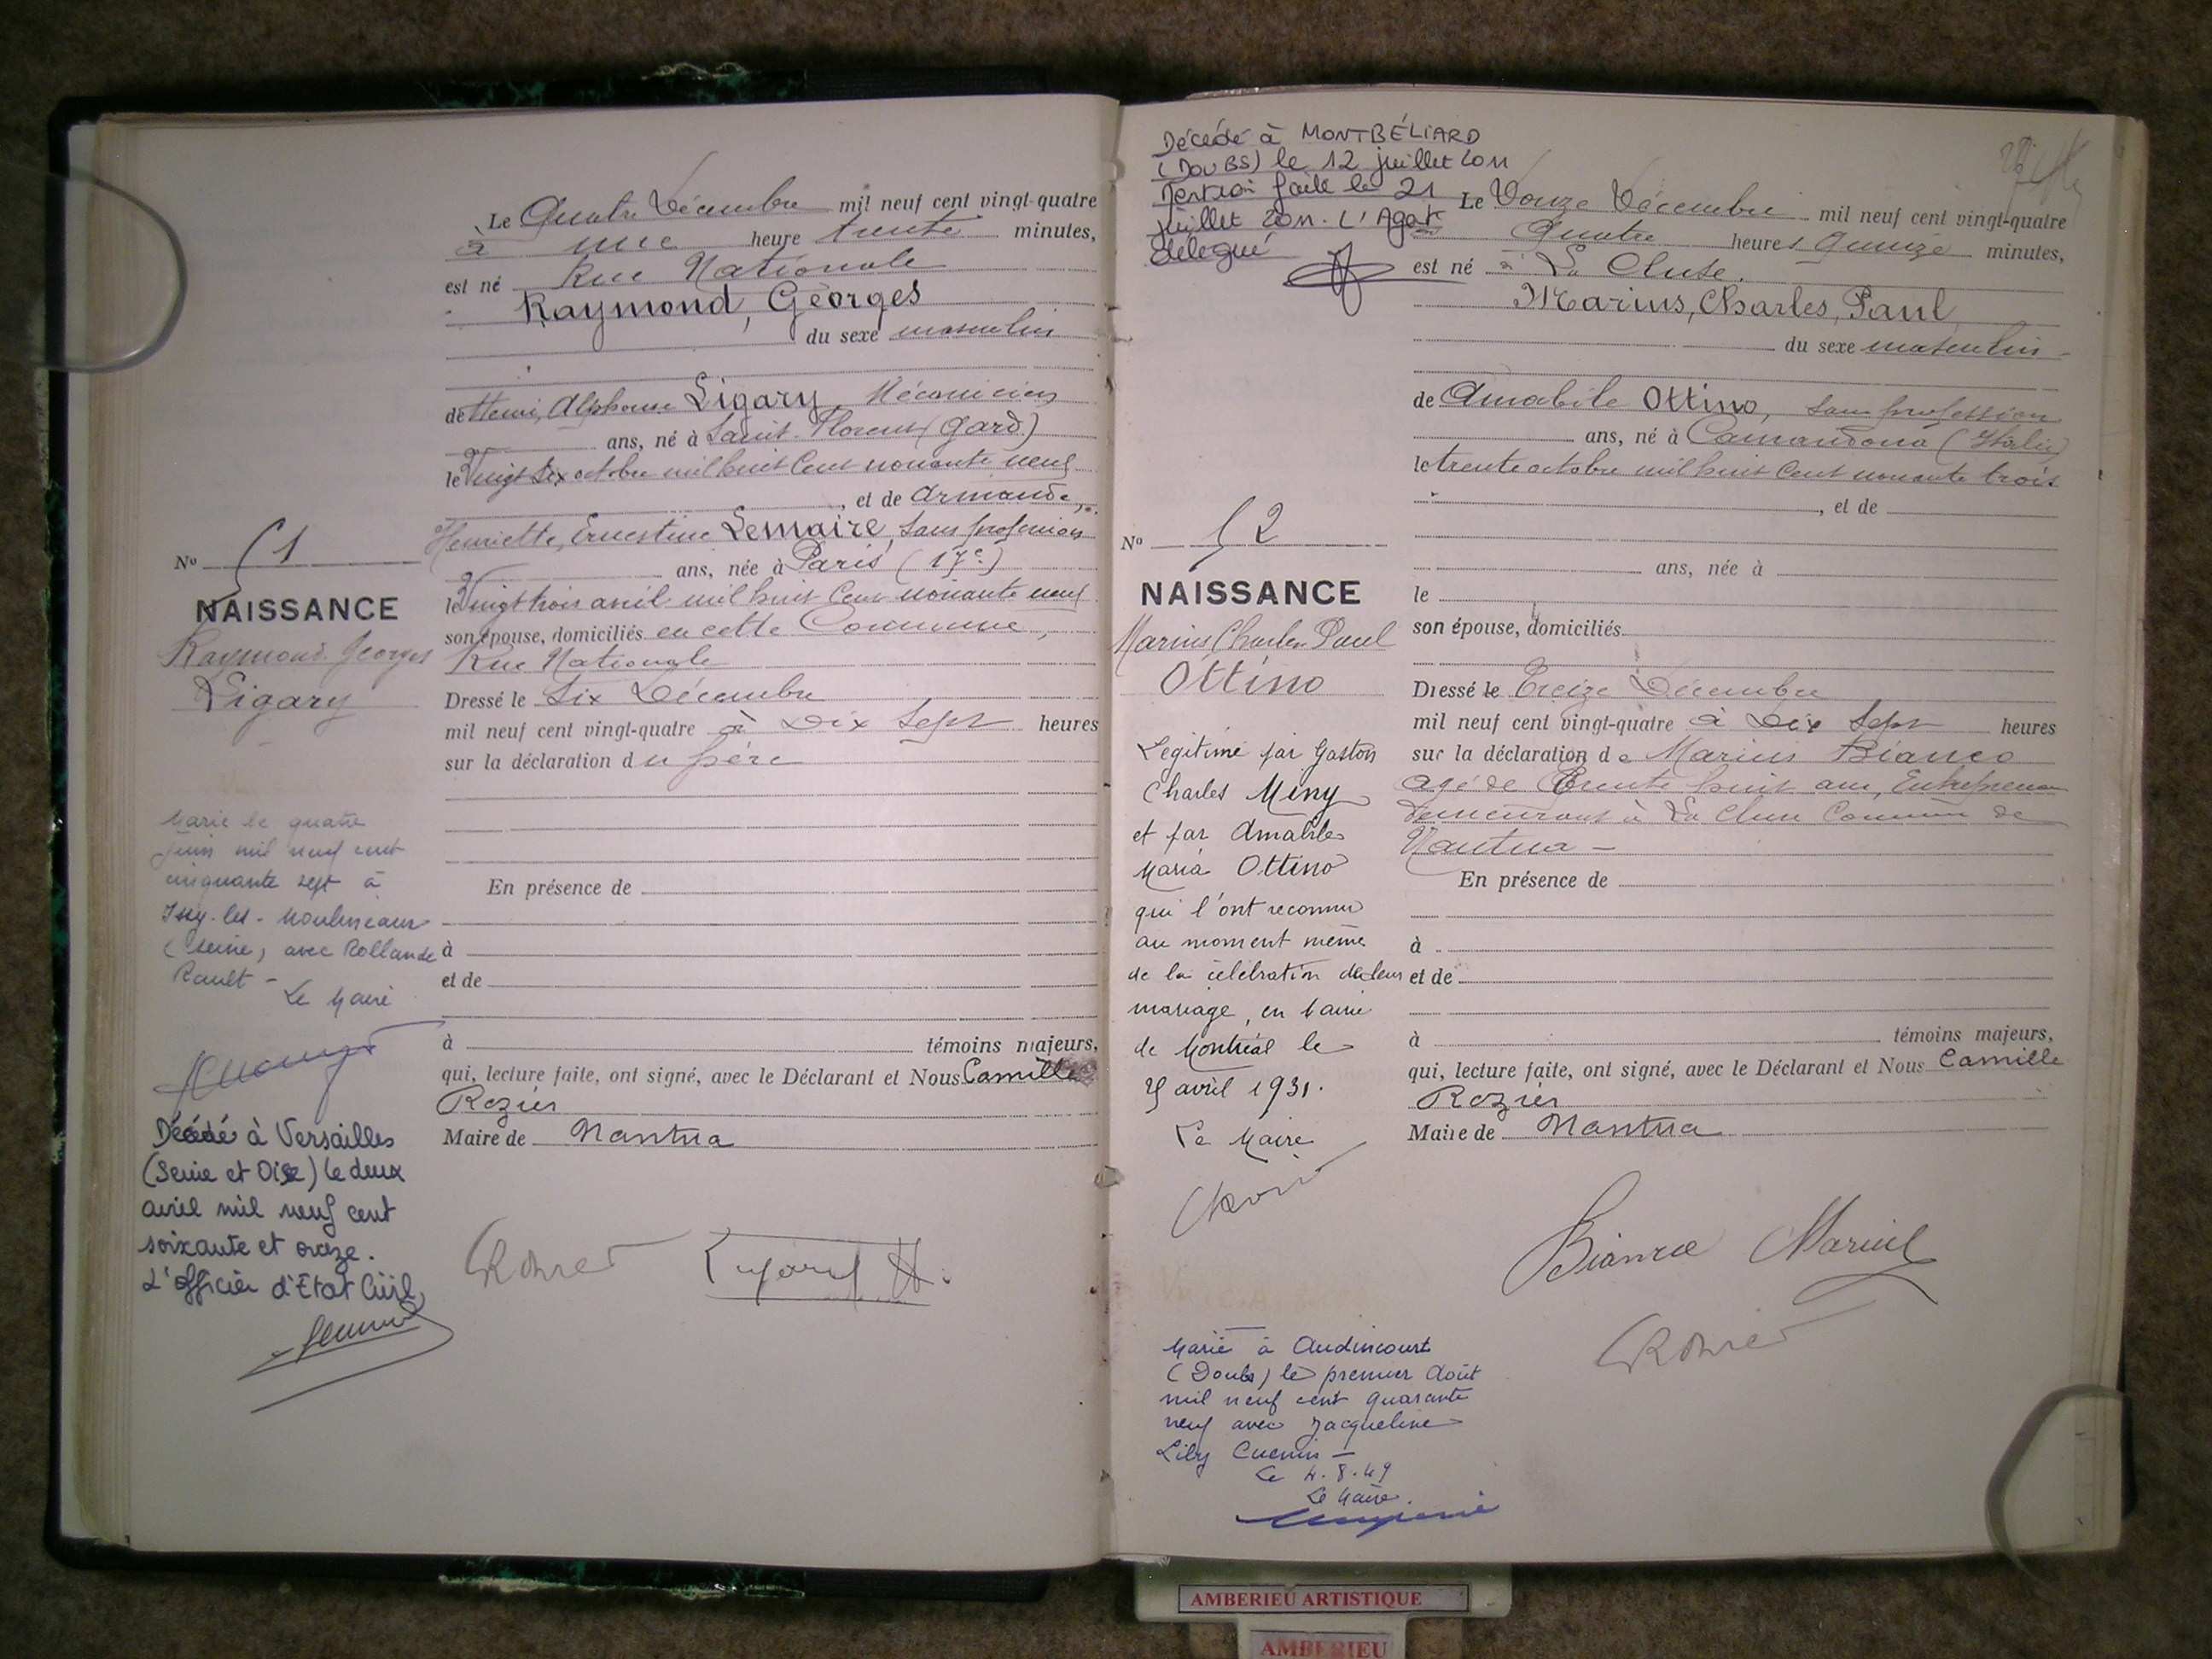 Le Quatre Décembre mil neuf cent vingt-quatre
à une heure trente minutes,
est né Rue Nationale
Raymond, Georges
du sexe masculin
de Henri, Alphonse Ligary, Mécanicien
ans, né à Saint-Florent (Gard)
le Vingt Six octobre mil huit cent nonante neuf
, et de Armande,
Henriette, Ernestine Lemaire, sans profession
ans, née à Paris (17e)
le Vingt trois avril mil huit Cent nonante neuf
son épouse, domiciliés en cette Commune,
Rue Nationale
Dressé le Six Décembre
mil neuf cent vingt-quatre à Dix Sept heures
sur la déclaration du père
En présence de
à
et de
à témoins majeurs,
qui, lecture faite, ont signé, avec le Déclarant et Nous Camille
Rozier
Maire de Nantua
No 51
NAISSANCE
Raymond. Georges
Ligary
Marié le quatre
juin mil neuf cent
cinquante sept à
Issy-les-Moulineaux
(Seine) avec Rollande
Rault -
Le Maire
Décédé à Versailles
(Seine et Oise) le deux
avril mil neuf cent
soixante et onze.
L'officier d'Etat Civil
Décédé à MONTBÉLIARD
(DOUBS) le 12 juillet 2011
Mention faite le 21
juillet 2011. L'Agent
délégué
Le Douze Décembre mil neuf cent vingt-quatre
Quatre heures Quinze minutes,
est né à La Cluse.
Marius, Charles, Paul,
du sexe masculin
de Amabile Ottino, sans profession
ans, né à Camandona (Italie)
le trente octobre mil huit Cent nonante trois
, et de
ans, née à
le
son épouse, domiciliés
Dressé le Treize Décembre
mil neuf cent vingt-quatre à Dix Sept heures
sur la déclaration de Marius Bianco
agé de Trente huit ans, Entrepreneur
demeurant à La Cluse Commune de
Nantua -
En présence de
à
et de
à témoins majeurs,
qui, lecture faite, ont signé, avec le Déclarant et Nous Camille
Rozier
Maire de Nantua
Bianco Marius
No 52
NAISSANCE
Marius, Charles, Paul
Ottino
Légitimé par Gaston
Charles Miny
et par Amabile
Maria Ottino
qui l'ont reconnu
au moment même
de la célébration de leur
mariage, en mairie
de Montréal le
25 avril 1931.
Le Maire
Marié à Audincourt
(Doubs) le premier Août
mil neuf cent quarante
neuf avec Jacqueline
Lily Cuenin -
Le 4.8.49
Le Maire.
AMBERIEU ARTISTIQUE
AMBERIEU